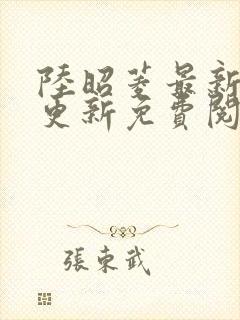 陸昭菱最新
更新免費閱
張東武